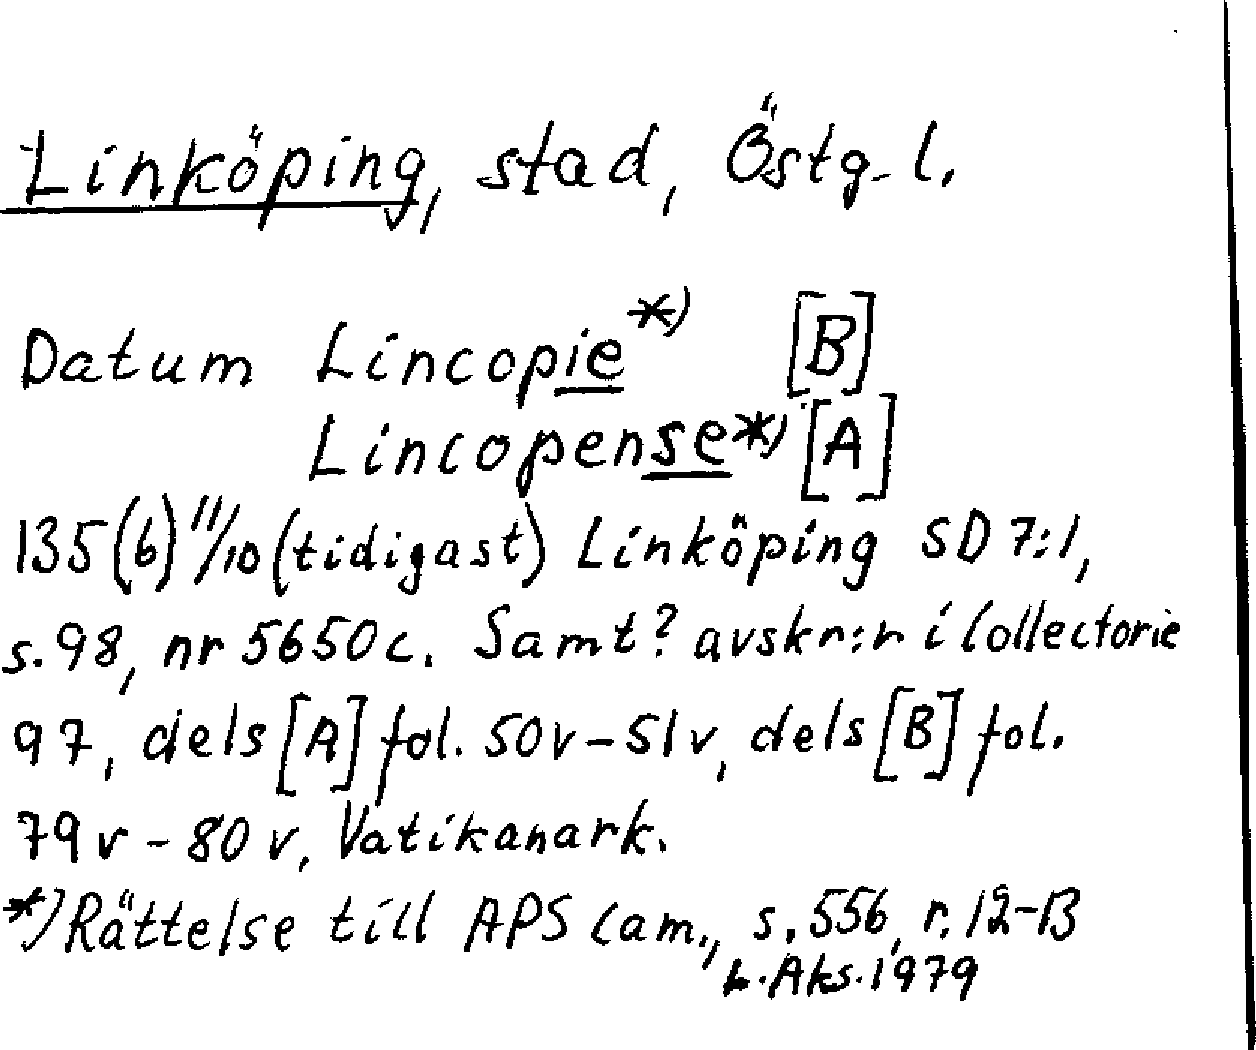 Linköping, stad, Östg. l.
Datum Lincopie*) [B]
Lincopense*) [A]
135(6) 11/10 (tidigast) Linköping SD 7:1,
s. 98, nr 5650 c. Samt? avskr:r i Collectorie
97, dels [A] fol. 50v-51v, dels [B] fol.
79v-80v, Vatikanark.
*) Rättelse till APS Cam., s. 556, r. 12-13
L. Aks. 1979